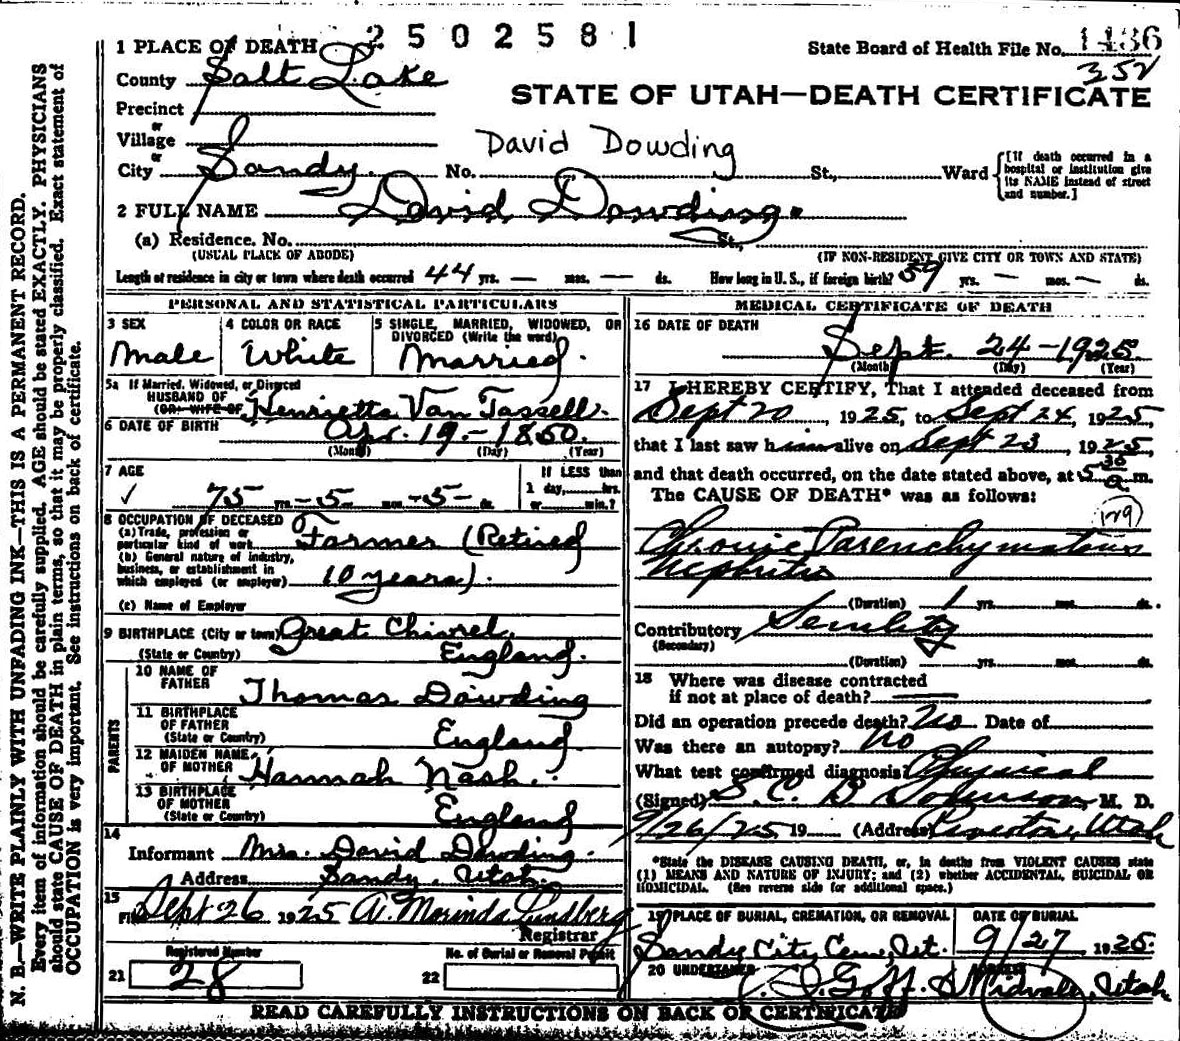 2502581
1 PLACE OF DEATH
State Board of Health File No. 1436
352
County Salt Lake
STATE OF UTAH—DEATH CERTIFICATE
Precinct
or
Village
David Dowding
or
City Sandy. No. St., Ward
[If death occurred in a hospital or institution give its NAME instead of street and number.]
2 FULL NAME David Dowding.
(a) Residence. No. St.,
(USUAL PLACE OF ABODE) (IF NON-RESIDENT GIVE CITY OR TOWN AND STATE)
Length of residence in city or town where death occurred 44 yrs. — mos. — ds. How long in U. S., if foreign birth? 59 yrs. — mos. — ds.
PERSONAL AND STATISTICAL PARTICULARS
3 SEX 4 COLOR OR RACE 5 SINGLE, MARRIED, WIDOWED, OR
DIVORCED (Write the word)
Male White Married.
5a If Married, Widowed, or Divorced
HUSBAND OF
(OR) WIFE OF Henrietta Van Tassell.
6 DATE OF BIRTH Apr. 19.-1850.
(Month) (Day) (Year)
7 AGE If LESS than
1 day, hrs.
75 yrs. -5 mos. -5- ds. or min.?
8 OCCUPATION OF DECEASED
(a) Trade, profession or
particular kind of work Farmer (Retired
(b) General nature of industry,
business, or establishment in
which employed (or employer) 10 years).
(c) Name of Employer
9 BIRTHPLACE (City or town) Great Chivrel.
(State or Country) England.
PARENTS
10 NAME OF
FATHER Thomas Dowding
11 BIRTHPLACE
OF FATHER
(State or Country) England.
12 MAIDEN NAME
OF MOTHER Hannah Nash.
13 BIRTHPLACE
OF MOTHER
(State or Country) England
14
Informant Mrs. David Dowding.
Address Sandy, Utah.
15
Filed Sept 26 1925 A. Marinda Lundberg
Registrar
Registered Number No. of Burial or Removal Permit
21 28 22
MEDICAL CERTIFICATE OF DEATH
16 DATE OF DEATH
Sept. 24-1925.
(Month) (Day) (Year)
17 I HEREBY CERTIFY, That I attended deceased from
Sept 20, 1925, to Sept 24, 1925,
that I last saw him alive on Sept 23, 1925,
and that death occurred, on the date stated above, at 5 30 a. m.
The CAUSE OF DEATH* was as follows:
(129)
Chronic Parenchymatous
Nephritis
(Duration) 1 yrs. mos. ds.
Contributory Senility
(Secondary)
(Duration) yrs. mos. ds.
18 Where was disease contracted
if not at place of death?
Did an operation precede death? No Date of
Was there an autopsy? No
What test confirmed diagnosis? Physical
(Signed) S. C. B Sorenson, M. D.
9/26/25 19 (Address) Utah
*State the DISEASE CAUSING DEATH, or, in deaths from VIOLENT CAUSES state
(1) MEANS AND NATURE OF INJURY; and (2) whether ACCIDENTAL, SUICIDAL OR
HOMICIDAL. (See reverse side for additional space.)
19 PLACE OF BURIAL, CREMATION, OR REMOVAL DATE OF BURIAL
Sandy City Cem, Ut. 9/27 1925.
20 UNDERTAKER ADDRESS
Goff. Midvale, Utah
READ CAREFULLY INSTRUCTIONS ON BACK OF CERTIFICATE
N. B.—WRITE PLAINLY WITH UNFADING INK—THIS IS A PERMANENT RECORD.
Every item of information should be carefully supplied. AGE should be stated EXACTLY. PHYSICIANS
should state CAUSE OF DEATH in plain terms, so that it may be properly classified. Exact statement of
OCCUPATION is very important. See instructions on back of certificate.